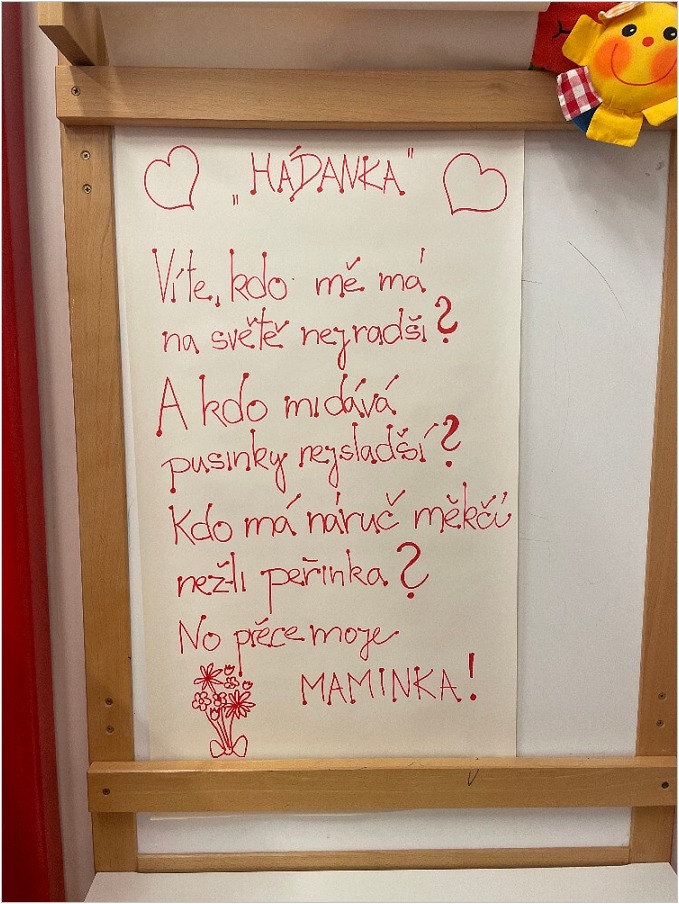 „HÁDANKA"
Víte, kdo mě má
na světě nejradši?
A kdo mi dává
pusinky nejsladší?
Kdo má náruč měkčí
nežli peřinka?
No přece moje
MAMINKA!